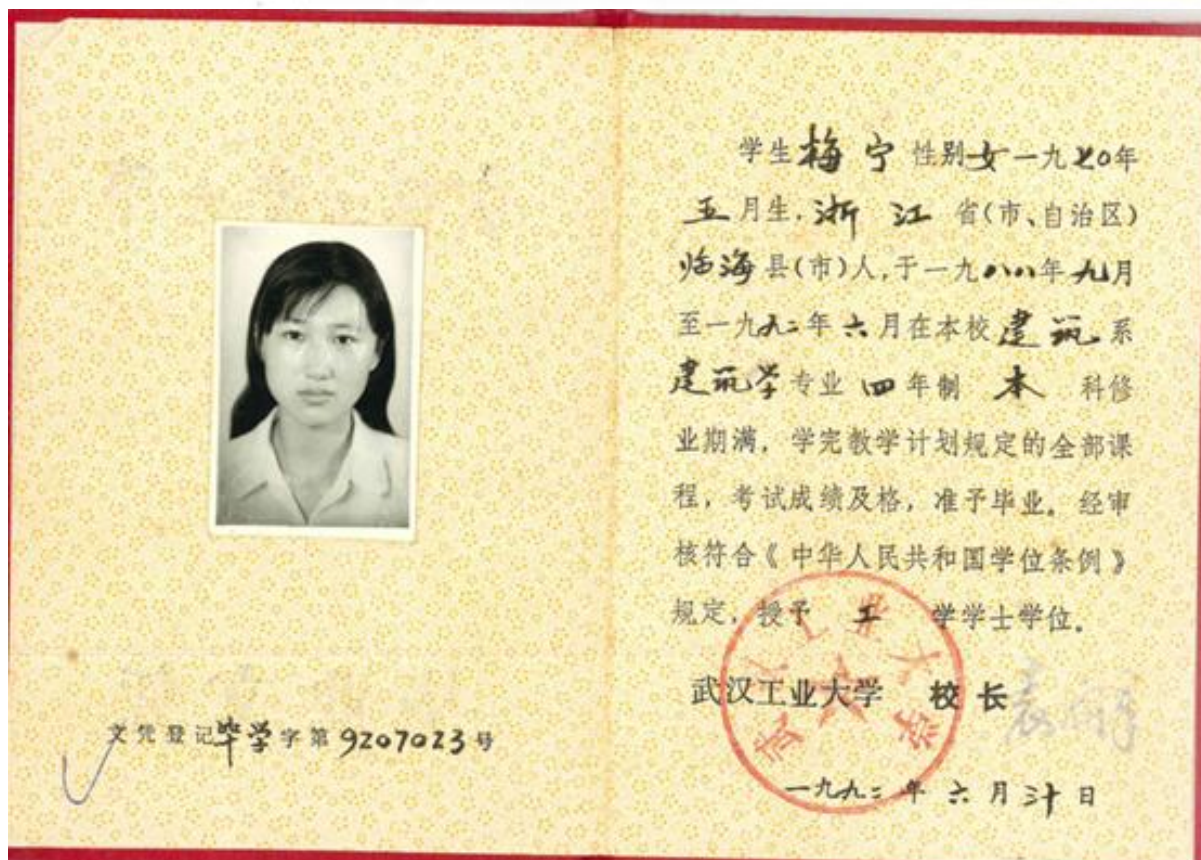 文凭登记毕学字第9207023号
学生梅宁性别女一九七0年
五月生,浙江省(市、自治区)
临海县(市)人,于一九八八年九月
至一九九二年六月在本校建筑系
建筑学专业四年制本科修
业期满,学完教学计划规定的全部课
程,考试成绩及格,准予毕业。经审
核符合《中华人民共和国学位条例》
规定,授予工学学士学位。
武汉工业大学
武汉工业大学 校长
一九九二年六月三十日